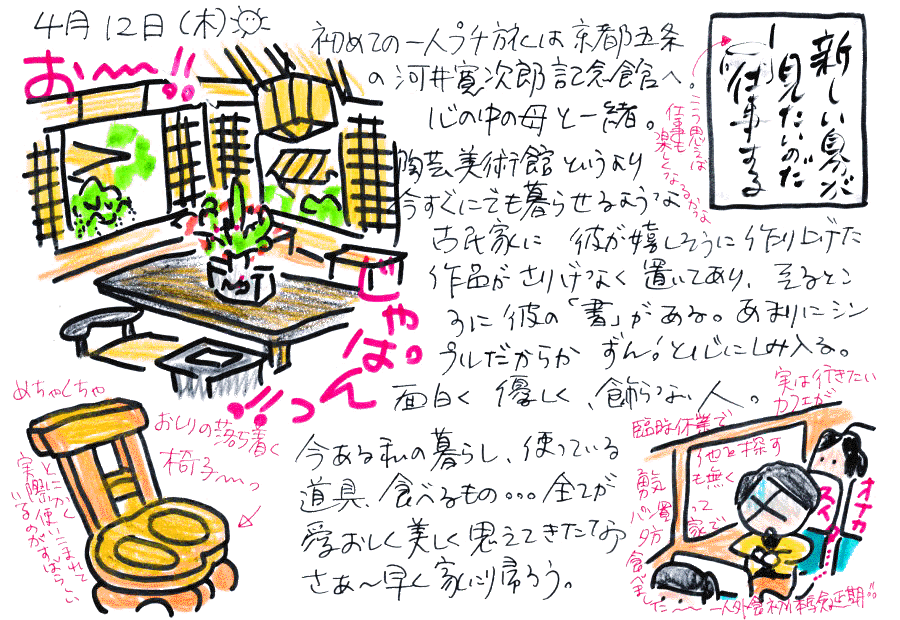 4月12日(木)
おーー!!
じゃ
は。
っ
ん
!!
初めての一人プチ旅は京都五条
の河井寛次郎記念館へ。
心の中の母と一緒。
陶芸美術館というより
今すぐにでも暮らせるような
古民家に 彼が嬉しそうに作り上げた
作品がさりげなく置いてあり、そるとこ
ろに彼の「書」がある。あまりにシン
プルだからか ずん!と心にしみ入る。
面白く 優しく、飾らない人。
新しい自分が
見たいのだ
仕事する
こう思えば
仕事も
楽しくなるかな
めちゃくちゃ
おしりの落ち着く
椅子〜っ
とにかく使いこまれて
実際
いるのがすばらしい
今ある私の暮らし、使っている
道具、食べるもの…全てが
愛おしく美しく思えてきたなら
さぁ〜早く家に帰ろう。
実は行きたい
カフェが
臨時休業で
他を探す
勇気も無く
パン買って
夕方家で
食べました〜
一人外食初体験延期
オナカ
スイタ……